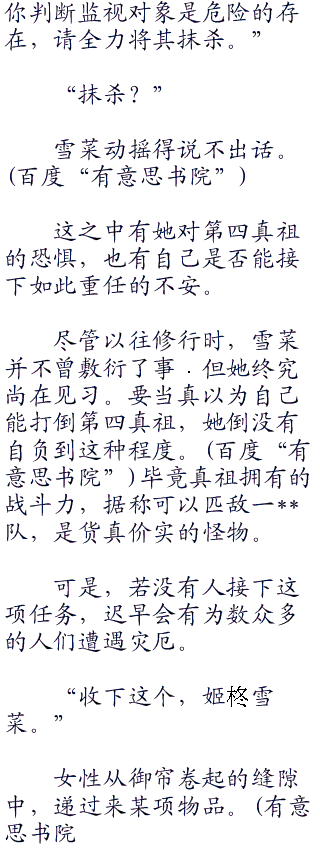 你判断监视对象是危险的存
在，请全力将其抹杀。”
“抹杀？”
雪菜动摇得说不出话。
(百度“有意思书院”)
这之中有她对第四真祖
的恐惧，也有自己是否能接
下如此重任的不安。
尽管以往修行时，雪菜
并不曾敷衍了事．但她终究
尚在见习。要当真以为自己
能打倒第四真祖，她倒没有
自负到这种程度。(百度“有
意思书院”)毕竟真祖拥有的
战斗力，据称可以匹敌一**
队，是货真价实的怪物。
可是，若没有人接下这
项任务，迟早会有为数众多
的人们遭遇灾厄。
“收下这个，姬柊雪
菜。”
女性从御帘卷起的缝隙
中，递过来某项物品。(有意
思书院